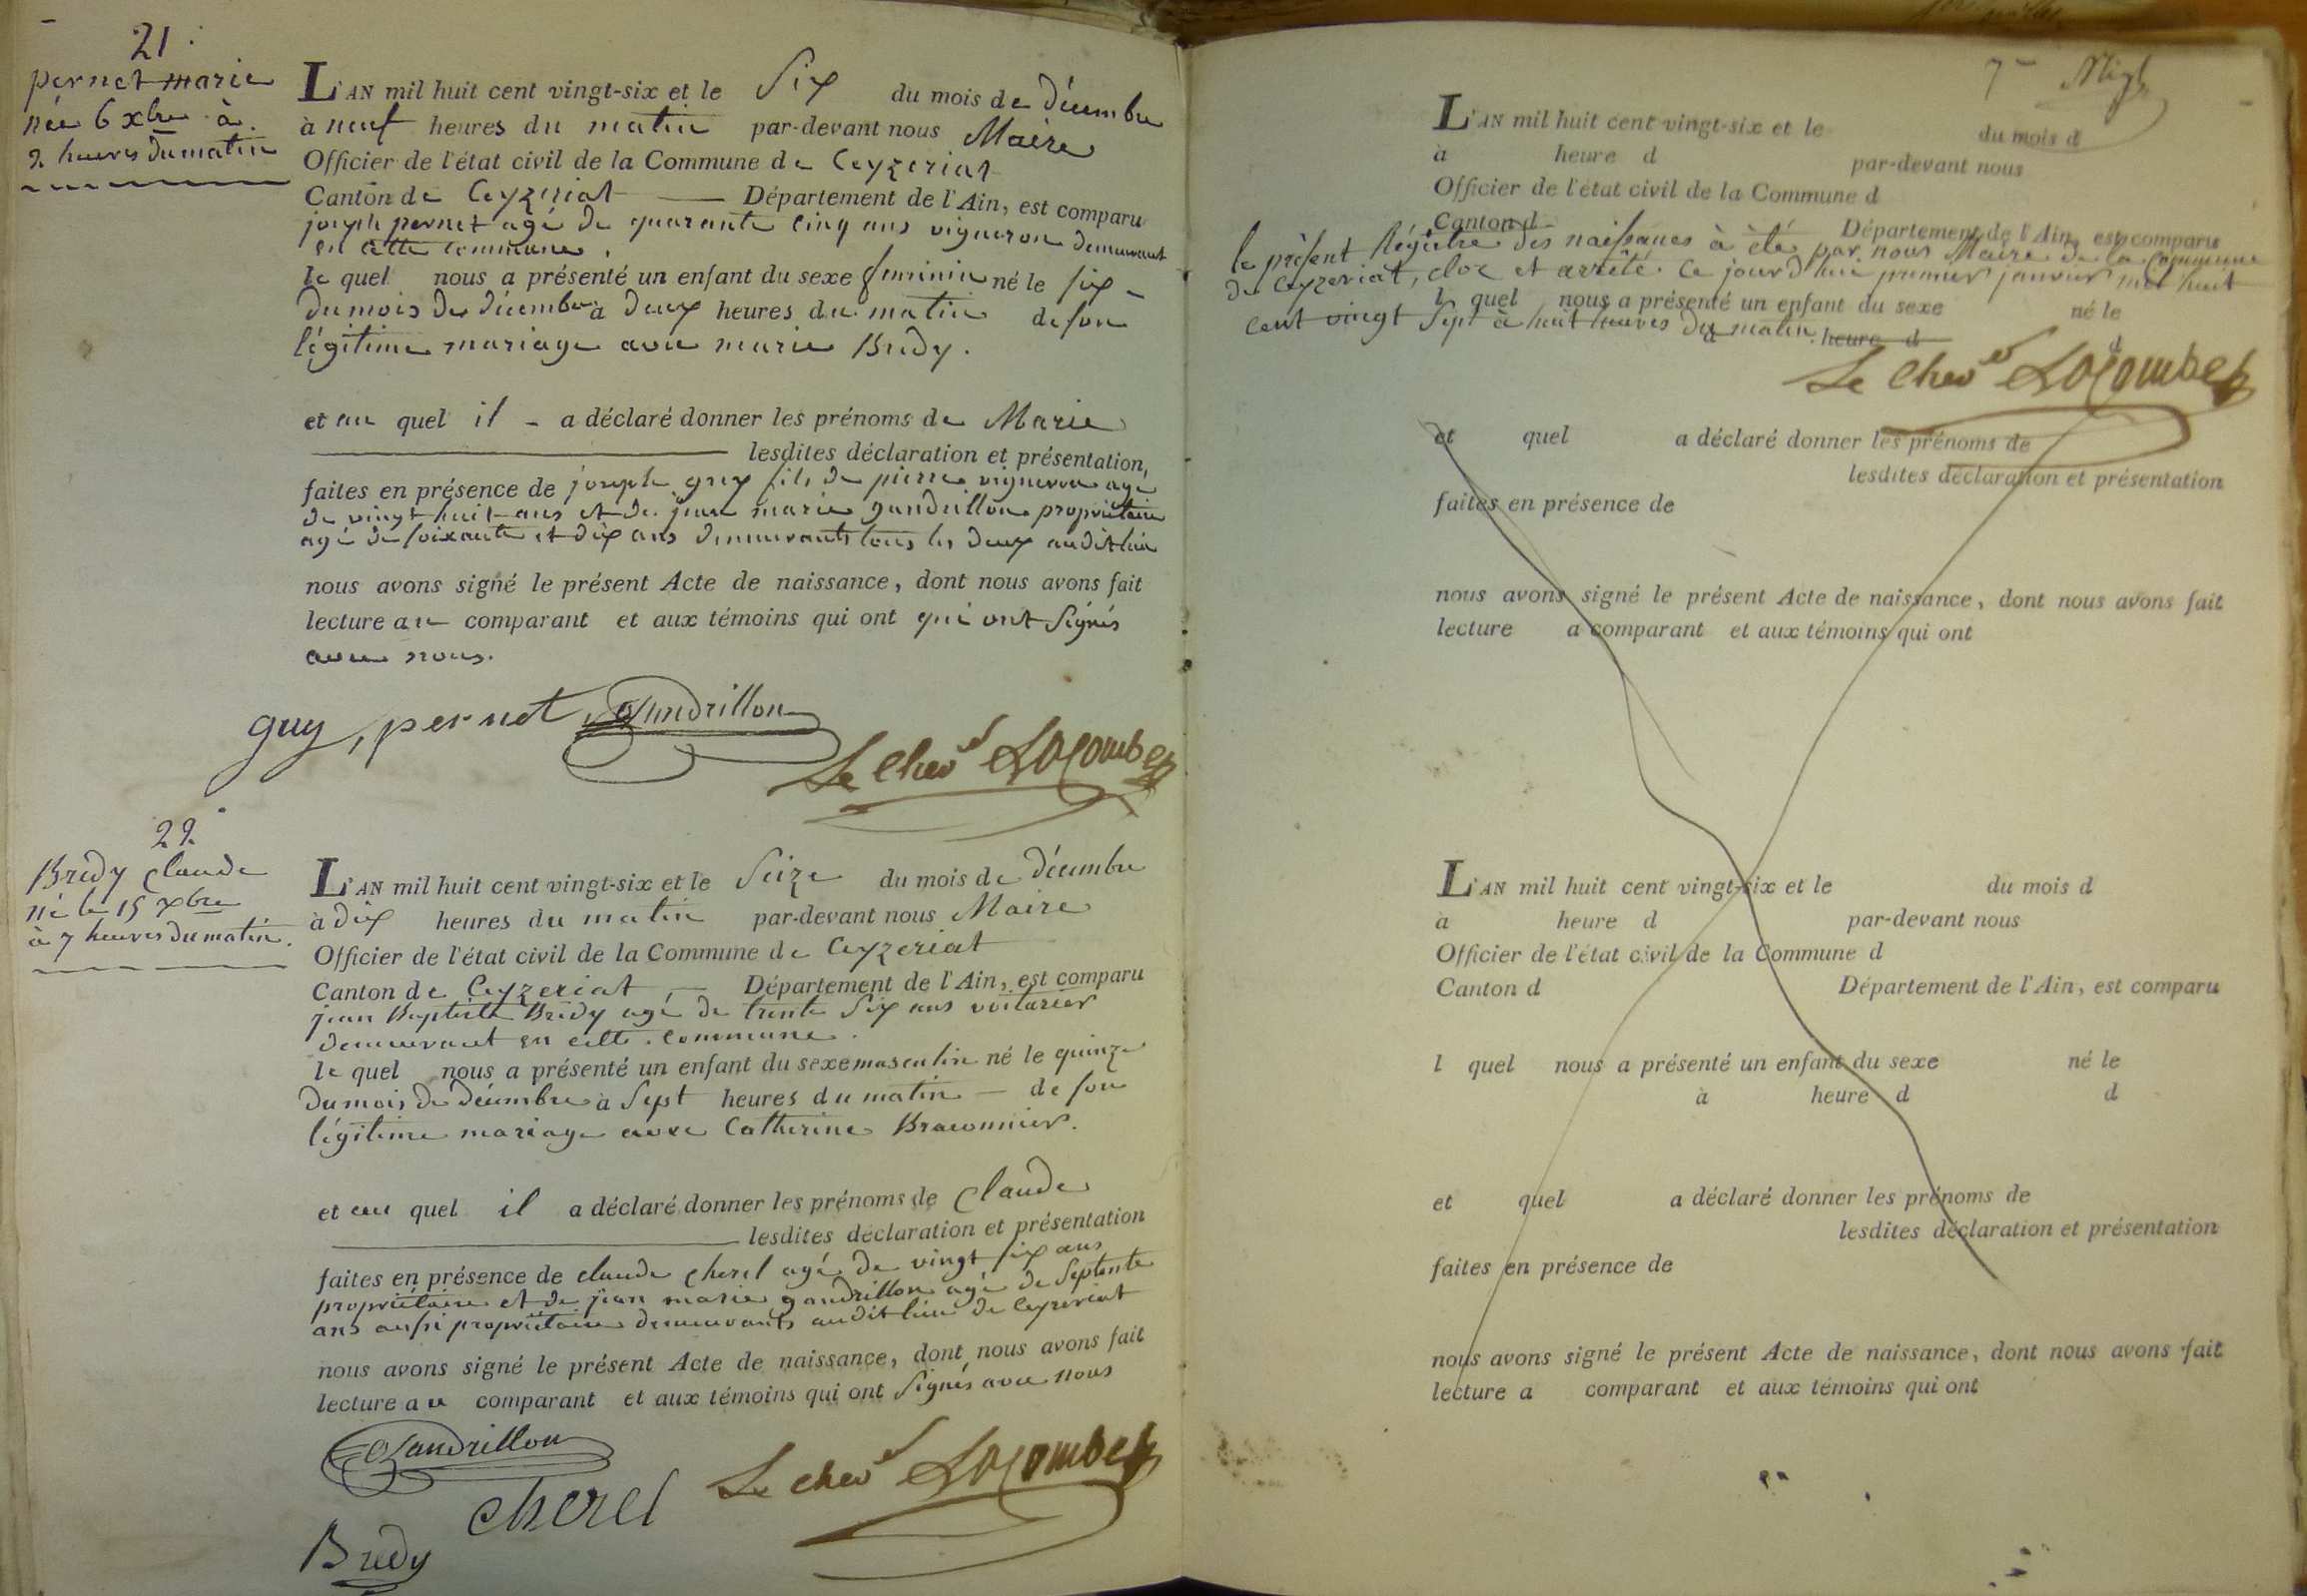 21
pernet marie
née 6 xbre à
2 heures du matin
L'AN mil huit cent vingt-six et le Six du mois de décembre
à neuf heures du matin par-devant nous Maire
Officier de l'état civil de la Commune de Ceyzeriat
Canton de Ceyzeriat Département de l'Ain, est comparu
joseph pernet agé de quarante cinq ans vigneron demeurant
en cette commune.
le quel nous a présenté un enfant du sexe feminin né le six
du mois de décembre à deux heures du matin de son
légitime mariage avec marie Bredy.
et au quel il a déclaré donner les prénoms de Marie
lesdites déclaration et présentation,
faites en présence de joseph guy fils de pierre vigneron agé
de vingt huit ans et de jean marie gandrillon propriétaire
agé de soixante et dix ans demeurants tous les deux audit lieu
nous avons signé le présent Acte de naissance, dont nous avons fait
lecture au comparant et aux témoins qui ont qui ont signés
avec nous.
guy, pernet, Gandrillon
Le chev.er Lacombe
22
Bredy Claude
né le 15 xbre
à 7 heures du matin.
L'AN mil huit cent vingt-six et le Seize du mois de décembre
à dix heures du matin par-devant nous Maire
Officier de l'état civil de la Commune de Ceyzeriat
Canton de Ceyzeriat Département de l'Ain, est comparu
jean Baptiste Bredy agé de trente Six ans voiturier
demeurant en cette commune.
le quel nous a présenté un enfant du sexe masculin né le quinze
du mois de décembre à Sept heures du matin de son
légitime mariage avec Catherine Braconnier.
et au quel il a déclaré donner les prénoms de Claude
lesdites déclaration et présentation
faites en présence de claude cherel agé de vingt six ans
propriétaire et de jean marie gandrillon agé de Septente
ans aussi propriétaire demeurants audit lieu de Ceyzeriat
nous avons signé le présent Acte de naissance, dont nous avons fait
lecture au comparant et aux témoins qui ont Signés avec nous
Gandrillon
cherel
Le chev.er Lacombe
Bredy
7
L'AN mil huit cent vingt-six et le du mois d
à heure d par-devant nous
Officier de l'état civil de la Commune d
Canton d Département de l'Ain, est comparu
le présent Régistre des naissances à été par nous Maire de la Commune
de Ceyzeriat, clos et arrêté. Ce jourd'hui premier janvier mil huit
l quel nous a présenté un enfant du sexe né le
cent vingt Sept à huit heures du matin.
à heure d d
Le chev.er Lacombe
et quel a déclaré donner les prénoms de
lesdites déclaration et présentation
faites en présence de
nous avons signé le présent Acte de naissance, dont nous avons fait
lecture a comparant et aux témoins qui ont
L'AN mil huit cent vingt-six et le du mois d
à heure d par-devant nous
Officier de l'état civil de la Commune d
Canton d Département de l'Ain, est comparu
l quel nous a présenté un enfant du sexe né le
à heure d d
et quel a déclaré donner les prénoms de
lesdites déclaration et présentation
faites en présence de
nous avons signé le présent Acte de naissance, dont nous avons fait
lecture a comparant et aux témoins qui ont